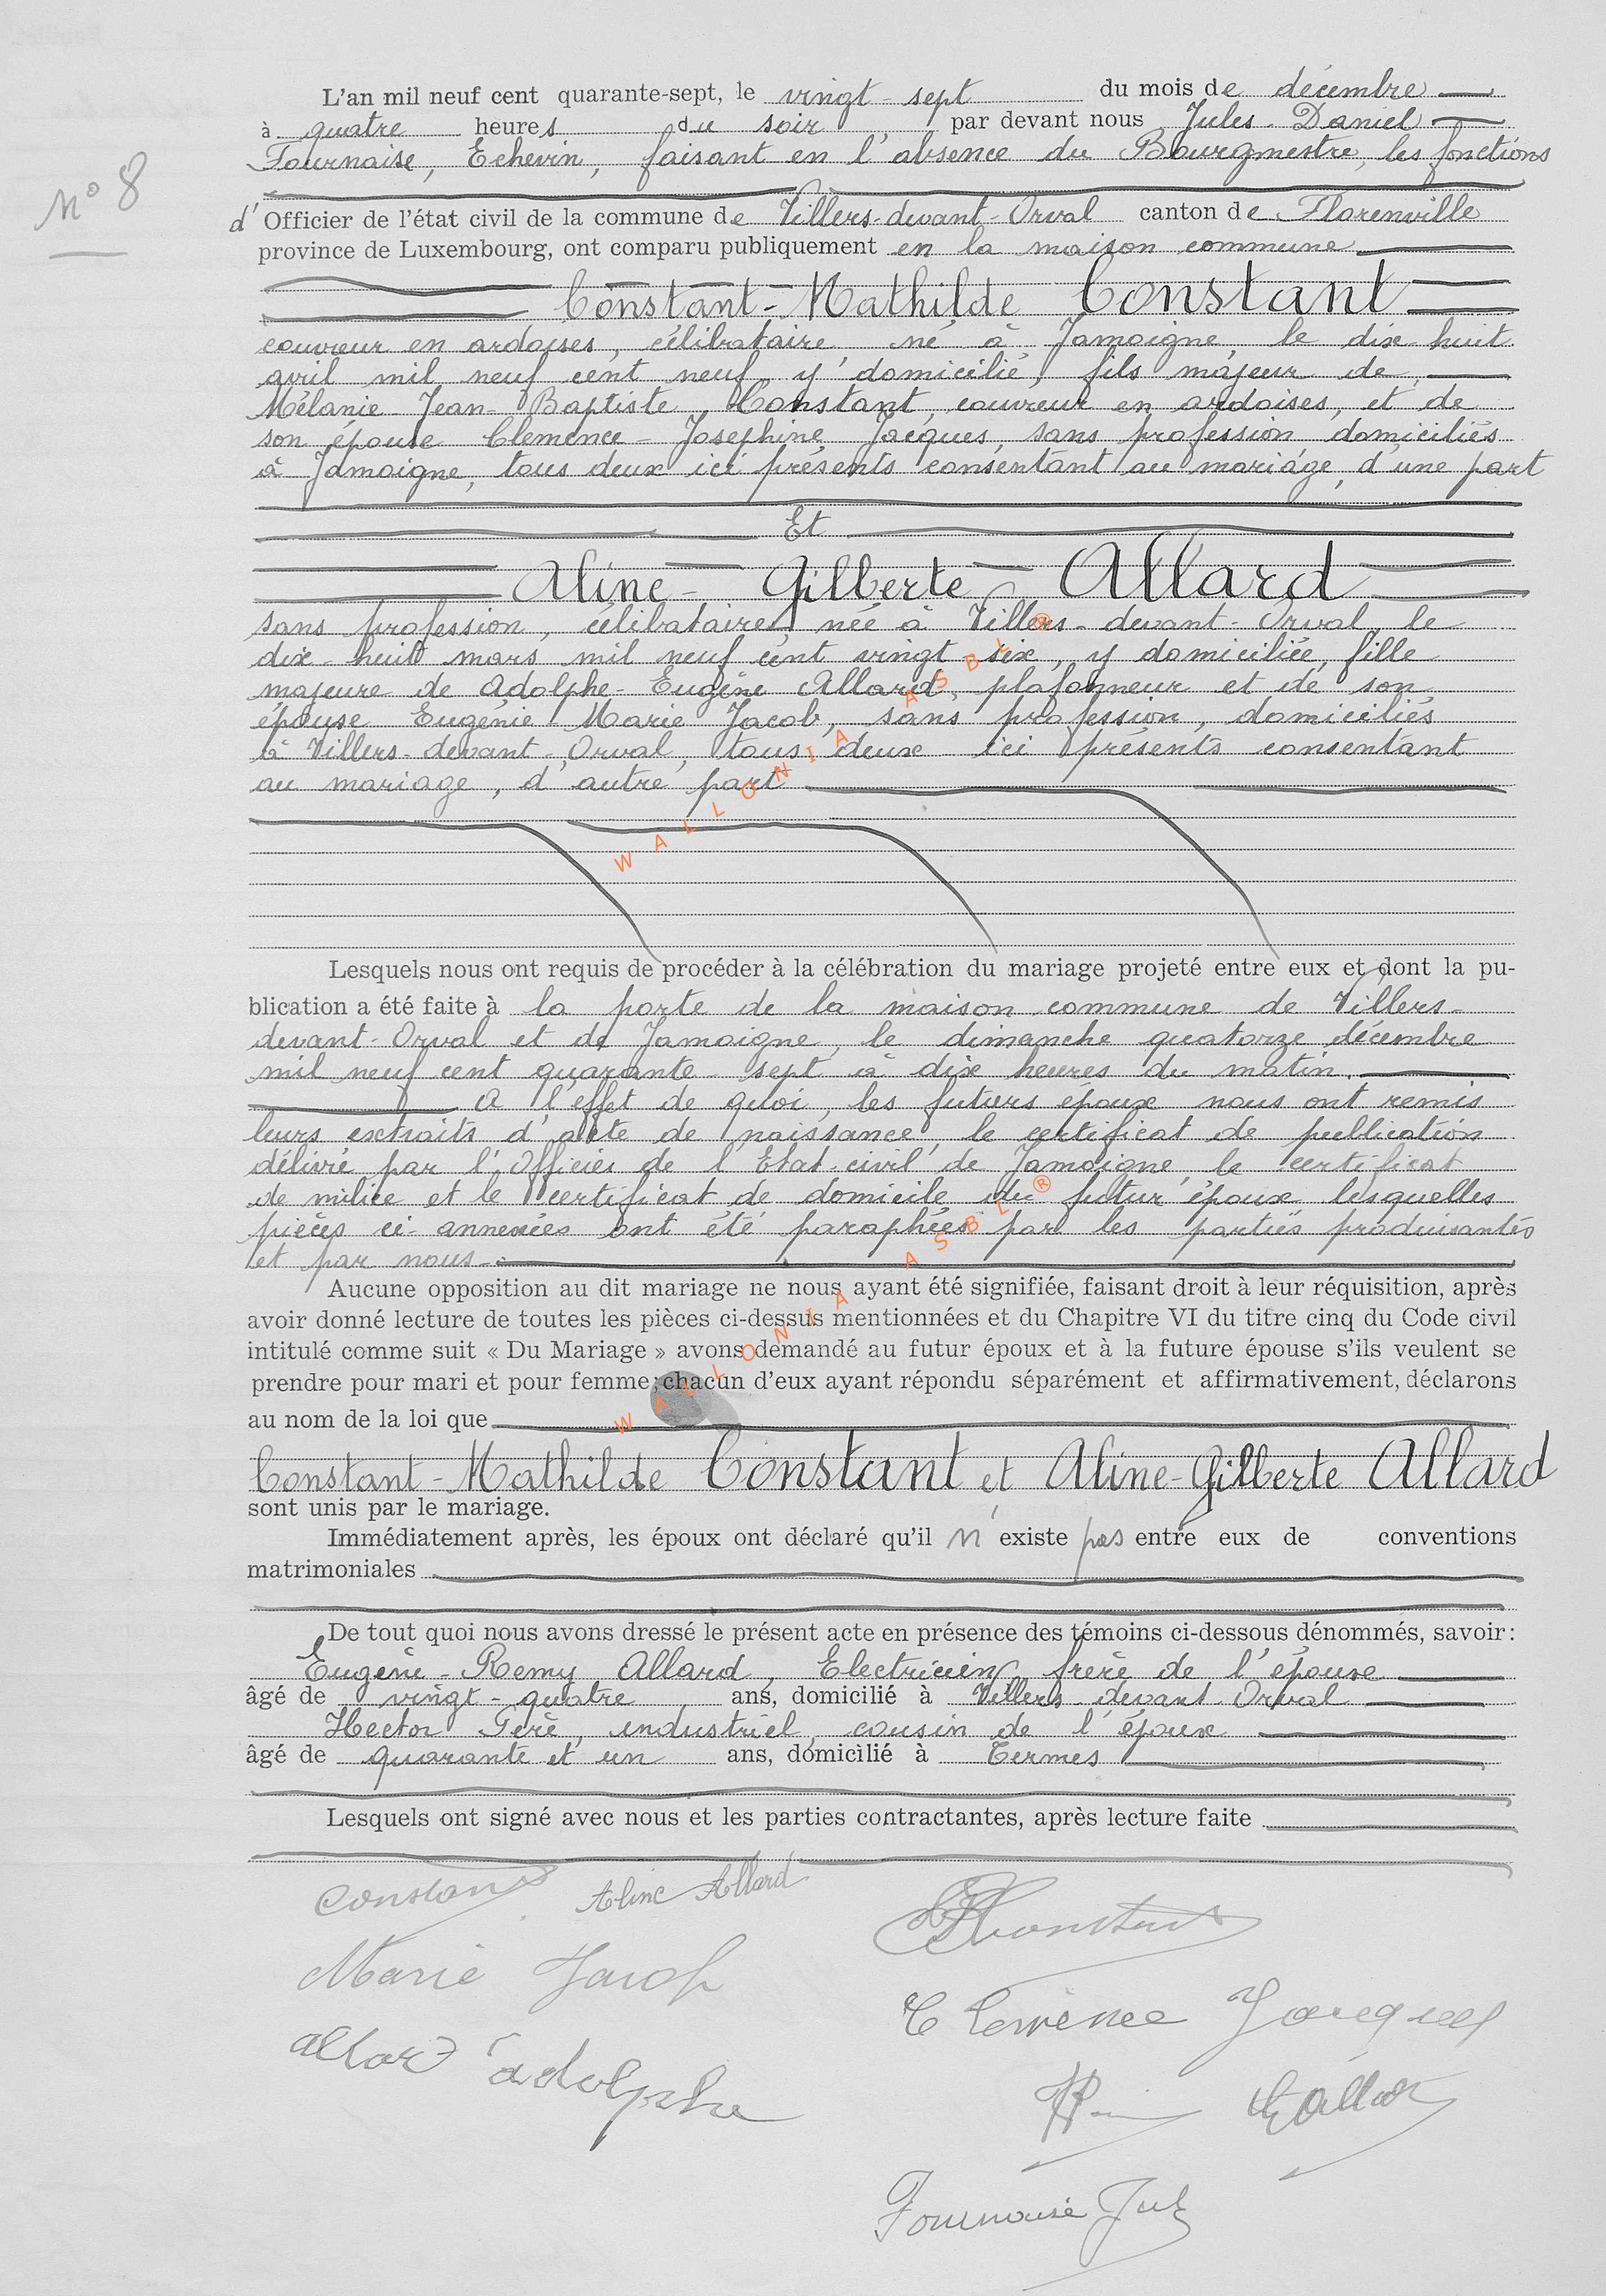 L'an mil neuf cent quarante-sept, le vingt-sept du mois de décembre
à quatre heures du soir par devant nous Jules-Daniel
Fournaise, Echevin, faisant en l'absence du Bourgmestre, les fonctions
N° 8
d'Officier de l'état civil de la commune de Villers-devant-Orval canton de Florenville
province de Luxembourg, ont comparu publiquement en la maison commune
Constant-Mathilde Constant
couvreur en ardoises, célibataire né à Jamoigne, le dix-huit
avril mil neuf cent neuf, y domicilié, fils majeur de
Mélanie-Jean-Baptiste Constant, couvreur en ardoises, et de
son épouse Clémence-Josephine Jacques, sans profession domiciliés
à Jamoigne, tous deux ici présents consentant au mariage, d'une part
Et
Aline-Gilberte Allard
sans profession, célibataire, née à Villers-devant-Orval, le
dix-huit mars mil neuf cent vingt six, y domiciliée, fille
majeure de Adolphe-Eugène Allard, plafonneur et de son
épouse Eugénie Marie Jacob, sans profession, domiciliés
à Villers-devant-Orval, tous deux ici présents consentant
au mariage, d'autre part
WALLONIA ASBL ®
Lesquels nous ont requis de procéder à la célébration du mariage projeté entre eux et dont la pu-
blication a été faite à la porte de la maison commune de Villers-
devant-Orval et de Jamoigne, le dimanche quatorze décembre
mil neuf cent quarante-sept à dix heures du matin.
A l'effet de quoi, les futurs époux nous ont remis
leurs extraits d'acte de naissance, le certificat de publication
délivré par l'Officier de l'Etat-civil de Jamoigne, le certificat
de milice et le certificat de domicile du futur époux lesquelles
pièces ci-annexées ont été paraphées par les parties produisantes
et par nous
WALLONIA ASBL ®
Aucune opposition au dit mariage ne nous ayant été signifiée, faisant droit à leur réquisition, après
avoir donné lecture de toutes les pièces ci-dessus mentionnées et du Chapitre VI du titre cinq du Code civil
intitulé comme suit « Du Mariage » avons demandé au futur époux et à la future épouse s'ils veulent se
prendre pour mari et pour femme; chacun d'eux ayant répondu séparément et affirmativement, déclarons
au nom de la loi que
Constant-Mathilde Constant et Aline-Gilberte Allard
sont unis par le mariage.
Immédiatement après, les époux ont déclaré qu'il n'existe pas entre eux de conventions
matrimoniales
De tout quoi nous avons dressé le présent acte en présence des témoins ci-dessous dénommés, savoir:
Eugène-Remy Allard, Electricien, frère de l'épouse
âgé de vingt-quatre ans, domicilié à Villers-devant-Orval
Hector Feré, industriel, cousin de l'époux
âgé de quarante et un ans, domicilié à Termes
Lesquels ont signé avec nous et les parties contractantes, après lecture faite
Constant Aline Allard Constant
Marie Jacob
Clemence Jacques
Allard Adolphe
Allard
Fournaise Jul